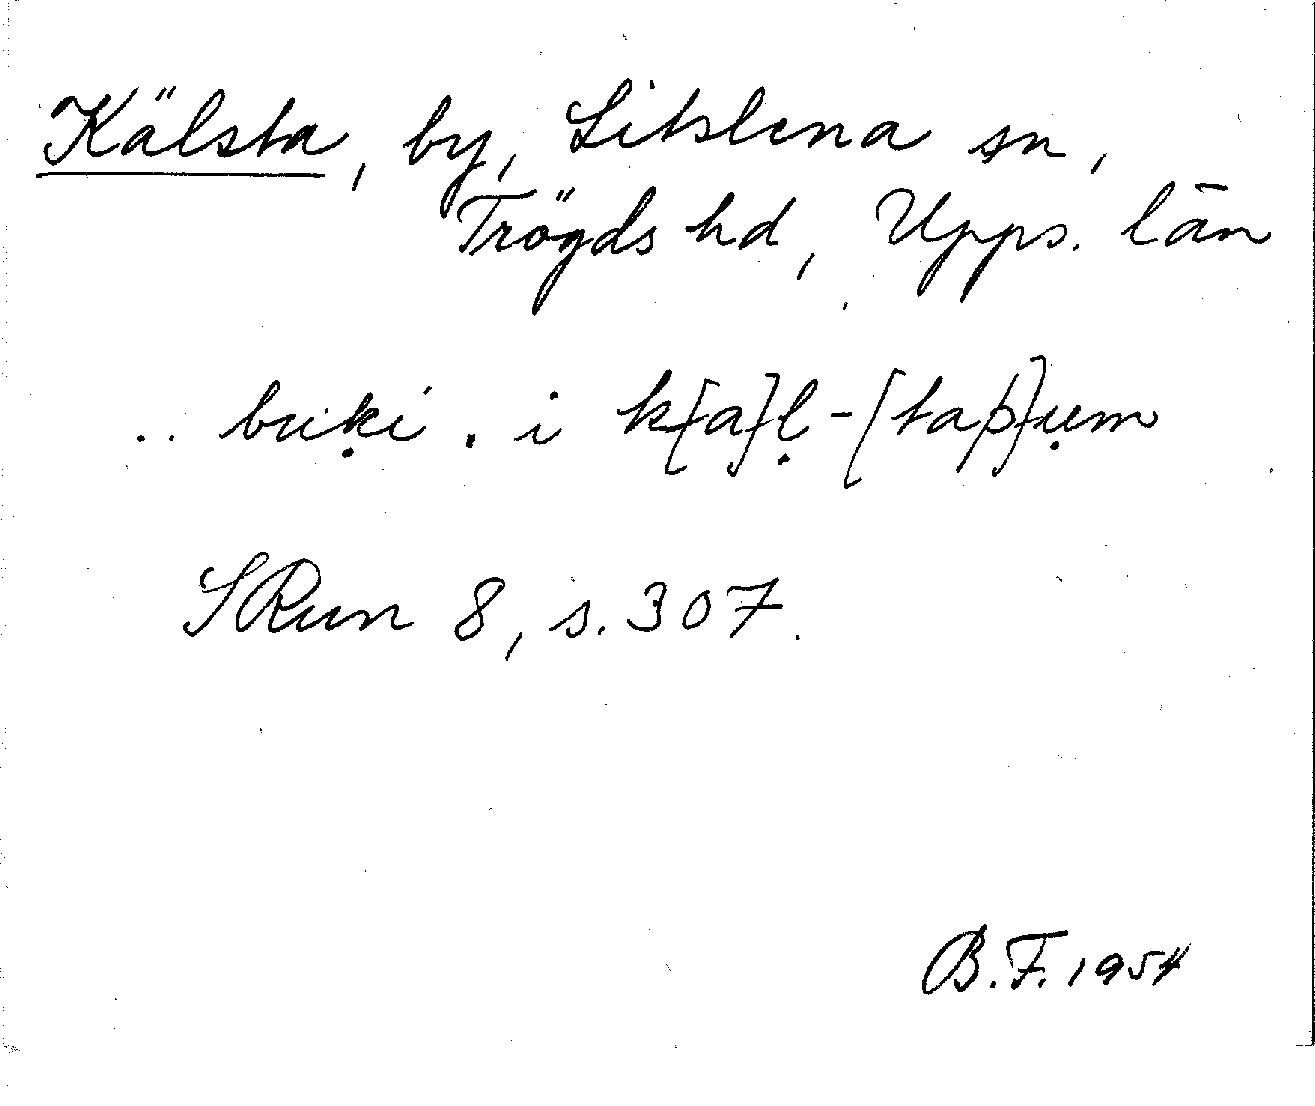 Kälsta, by, Litslena sn,
Trögds hd, Upps. län
.. buḳi . i k[a]ḷ-[taþ]ụm
SRun 8, s. 307.
B.F. 1954